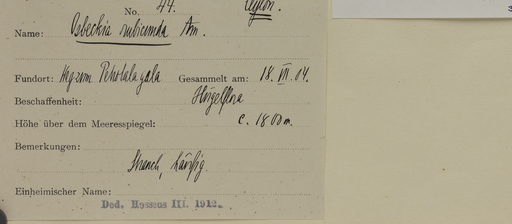 No. 44. Ceylon.
Name: Osbeckia rubicunda Arn.
Fundort: Pidrotalagala Gesammelt am: 18. VII. 04.
Beschaffenheit: Hügelflora
Höhe über dem Meeresspiegel: c. 1800 m.
Bemerkungen:
Strauch, häufig
Einheimischer Name:
Ded. Hosseus III. 1912.